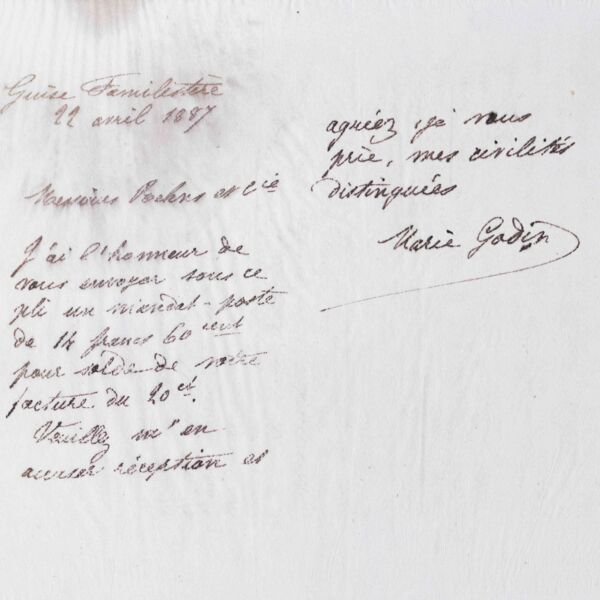 Guise Familistère
22 avril 1887
Messieurs et Cie
J'ai l'honneur de
vous envoyer sous ce
pli un mandat-poste
de 14 francs 60 cent
pour solde de votre
facture du 20 ct.
Veuillez m'en
accuser réception et
agréez, je vous
prie, mes civilités
distinguées
Marie Godin